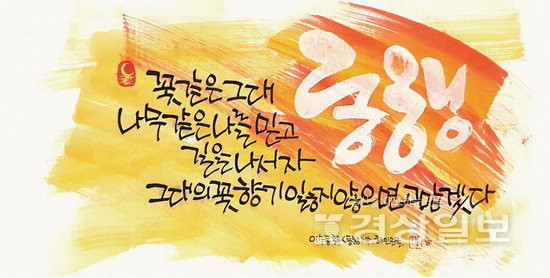 동행
꽃같은 그대
나무같은 나를 믿고
길을 나서자
그대의 꽃향기 잃지 않으면 고맙겠다
이수동
경상일보